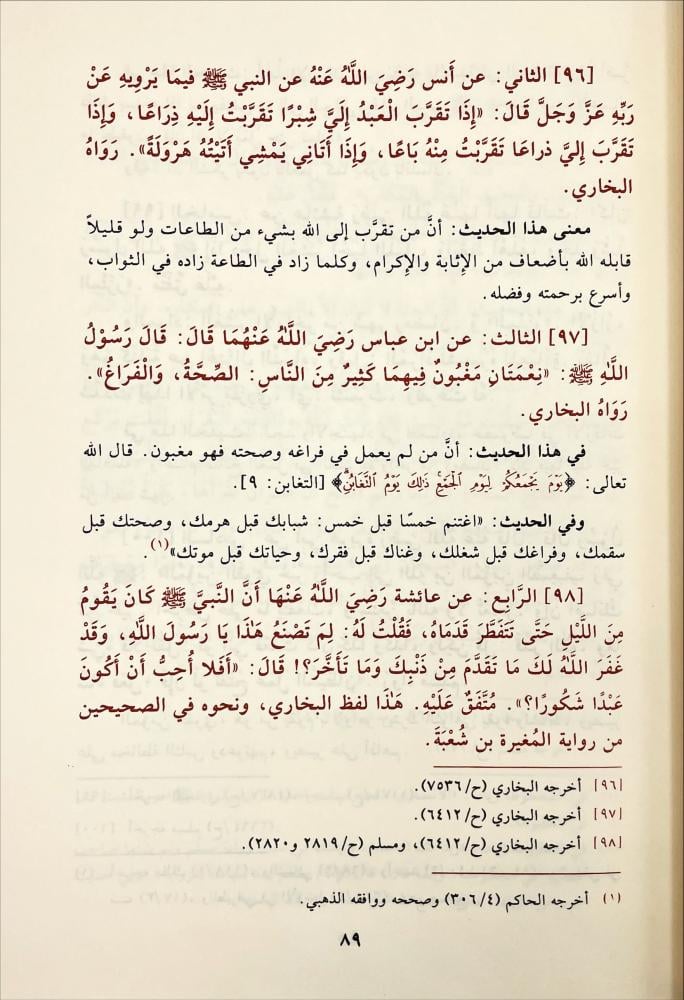 [٩٦] الثاني: عن أَنس رَضِيَ اللَّهُ عَنْهُ عن النبي ﷺ فيمَا يَرْوِيهِ عَنْ
رَبِّهِ عَزَّ وَجَلَّ قَالَ: «إِذَا تَقَرَّبَ الْعَبْدُ إِلَيَّ شِبْرًا تَقَرَّبْتُ إِلَيْهِ ذِرَاعًا، وَإِذَا
تَقَرَّبَ إِلَيَّ ذراعَا تَقَرَّبْتُ مِنْهُ بَاعًا، وَإِذَا أَتَانِي يَمْشِي أَتَيْتُهُ هَرْوَلَةً». رَوَاهُ
البخاري.
معنى هذا الحديث: أنَّ من تقرَّب إلى الله بشيء من الطاعات ولو قليلاً
قابله الله بأضعاف من الإثابة والإكرام، وكلما زاد في الطاعة زاده في الثواب،
وأسرع برحمته وفضله.
[٩٧] الثالث: عن ابن عباس رَضِيَ اللَّهُ عَنْهُمَا قَالَ: قَالَ رَسُوْلُ
اللَّهِ ﷺ: «نِعْمَتَانِ مَغْبُونٌ فِيهِمَا كَثِيْرٌ مِنَ النَّاسِ: الصِّحَّةُ، وَالْفَرَاغُ».
رَوَاهُ البخاري.
في هذا الحديث: أنَّ من لم يعمل في فراغه وصحته فهو مغبون. قال الله
تعالى: ﴿يَوْمَ يَجْمَعُكُمْ لِيَوْمِ ٱلْجَمْعِ ذَٰلِكَ يَوْمُ ٱلتَّغَابُنِ﴾ [التغابن: ٩].
وفي الحديث: «اغتنم خمسًا قبل خمس: شبابك قبل هرمك، وصحتك قبل
سقمك، وفراغك قبل شغلك، وغناك قبل فقرك، وحياتك قبل موتك»(١).
[٩٨] الرَّابِع: عن عائشة رَضِيَ اللَّهُ عَنْهَا أَنَّ النَّبِيَّ ﷺ كَانَ يَقُومُ
مِنَ اللَّيْلِ حَتَّى تَتَفَطَّرَ قَدَمَاهُ، فَقُلْتُ لَهُ: لِمَ تَصْنَعُ هَٰذَا يَا رَسُولَ اللَّهِ، وَقَدْ
غَفَرَ اللَّهُ لَكَ مَا تَقَدَّمَ مِنْ ذَنْبِكَ وَمَا تَأَخَّرَ؟! قَالَ: «أَفَلا أُحِبُّ أَنْ أَكُونَ
عَبْدًا شَكُورًا؟». مُتَّفَقٌ عَلَيْهِ. هَٰذَا لفظ البخاري، ونحوه في الصحيحين
من رواية المُغيرة بن شُعْبَةَ.
[٩٦] أخرجه البخاري (ح/٧٥٣٦).
[٩٧] أخرجه البخاري (ح/٦٤١٢).
[٩٨] أخرجه البخاري (ح/٦٤١٢)، ومسلم (ح/٢٨١٩ و٢٨٢٠).
(١) أخرجه الحاكم (٣٠٦/٤) وصححه ووافقه الذهبي.
٨٩